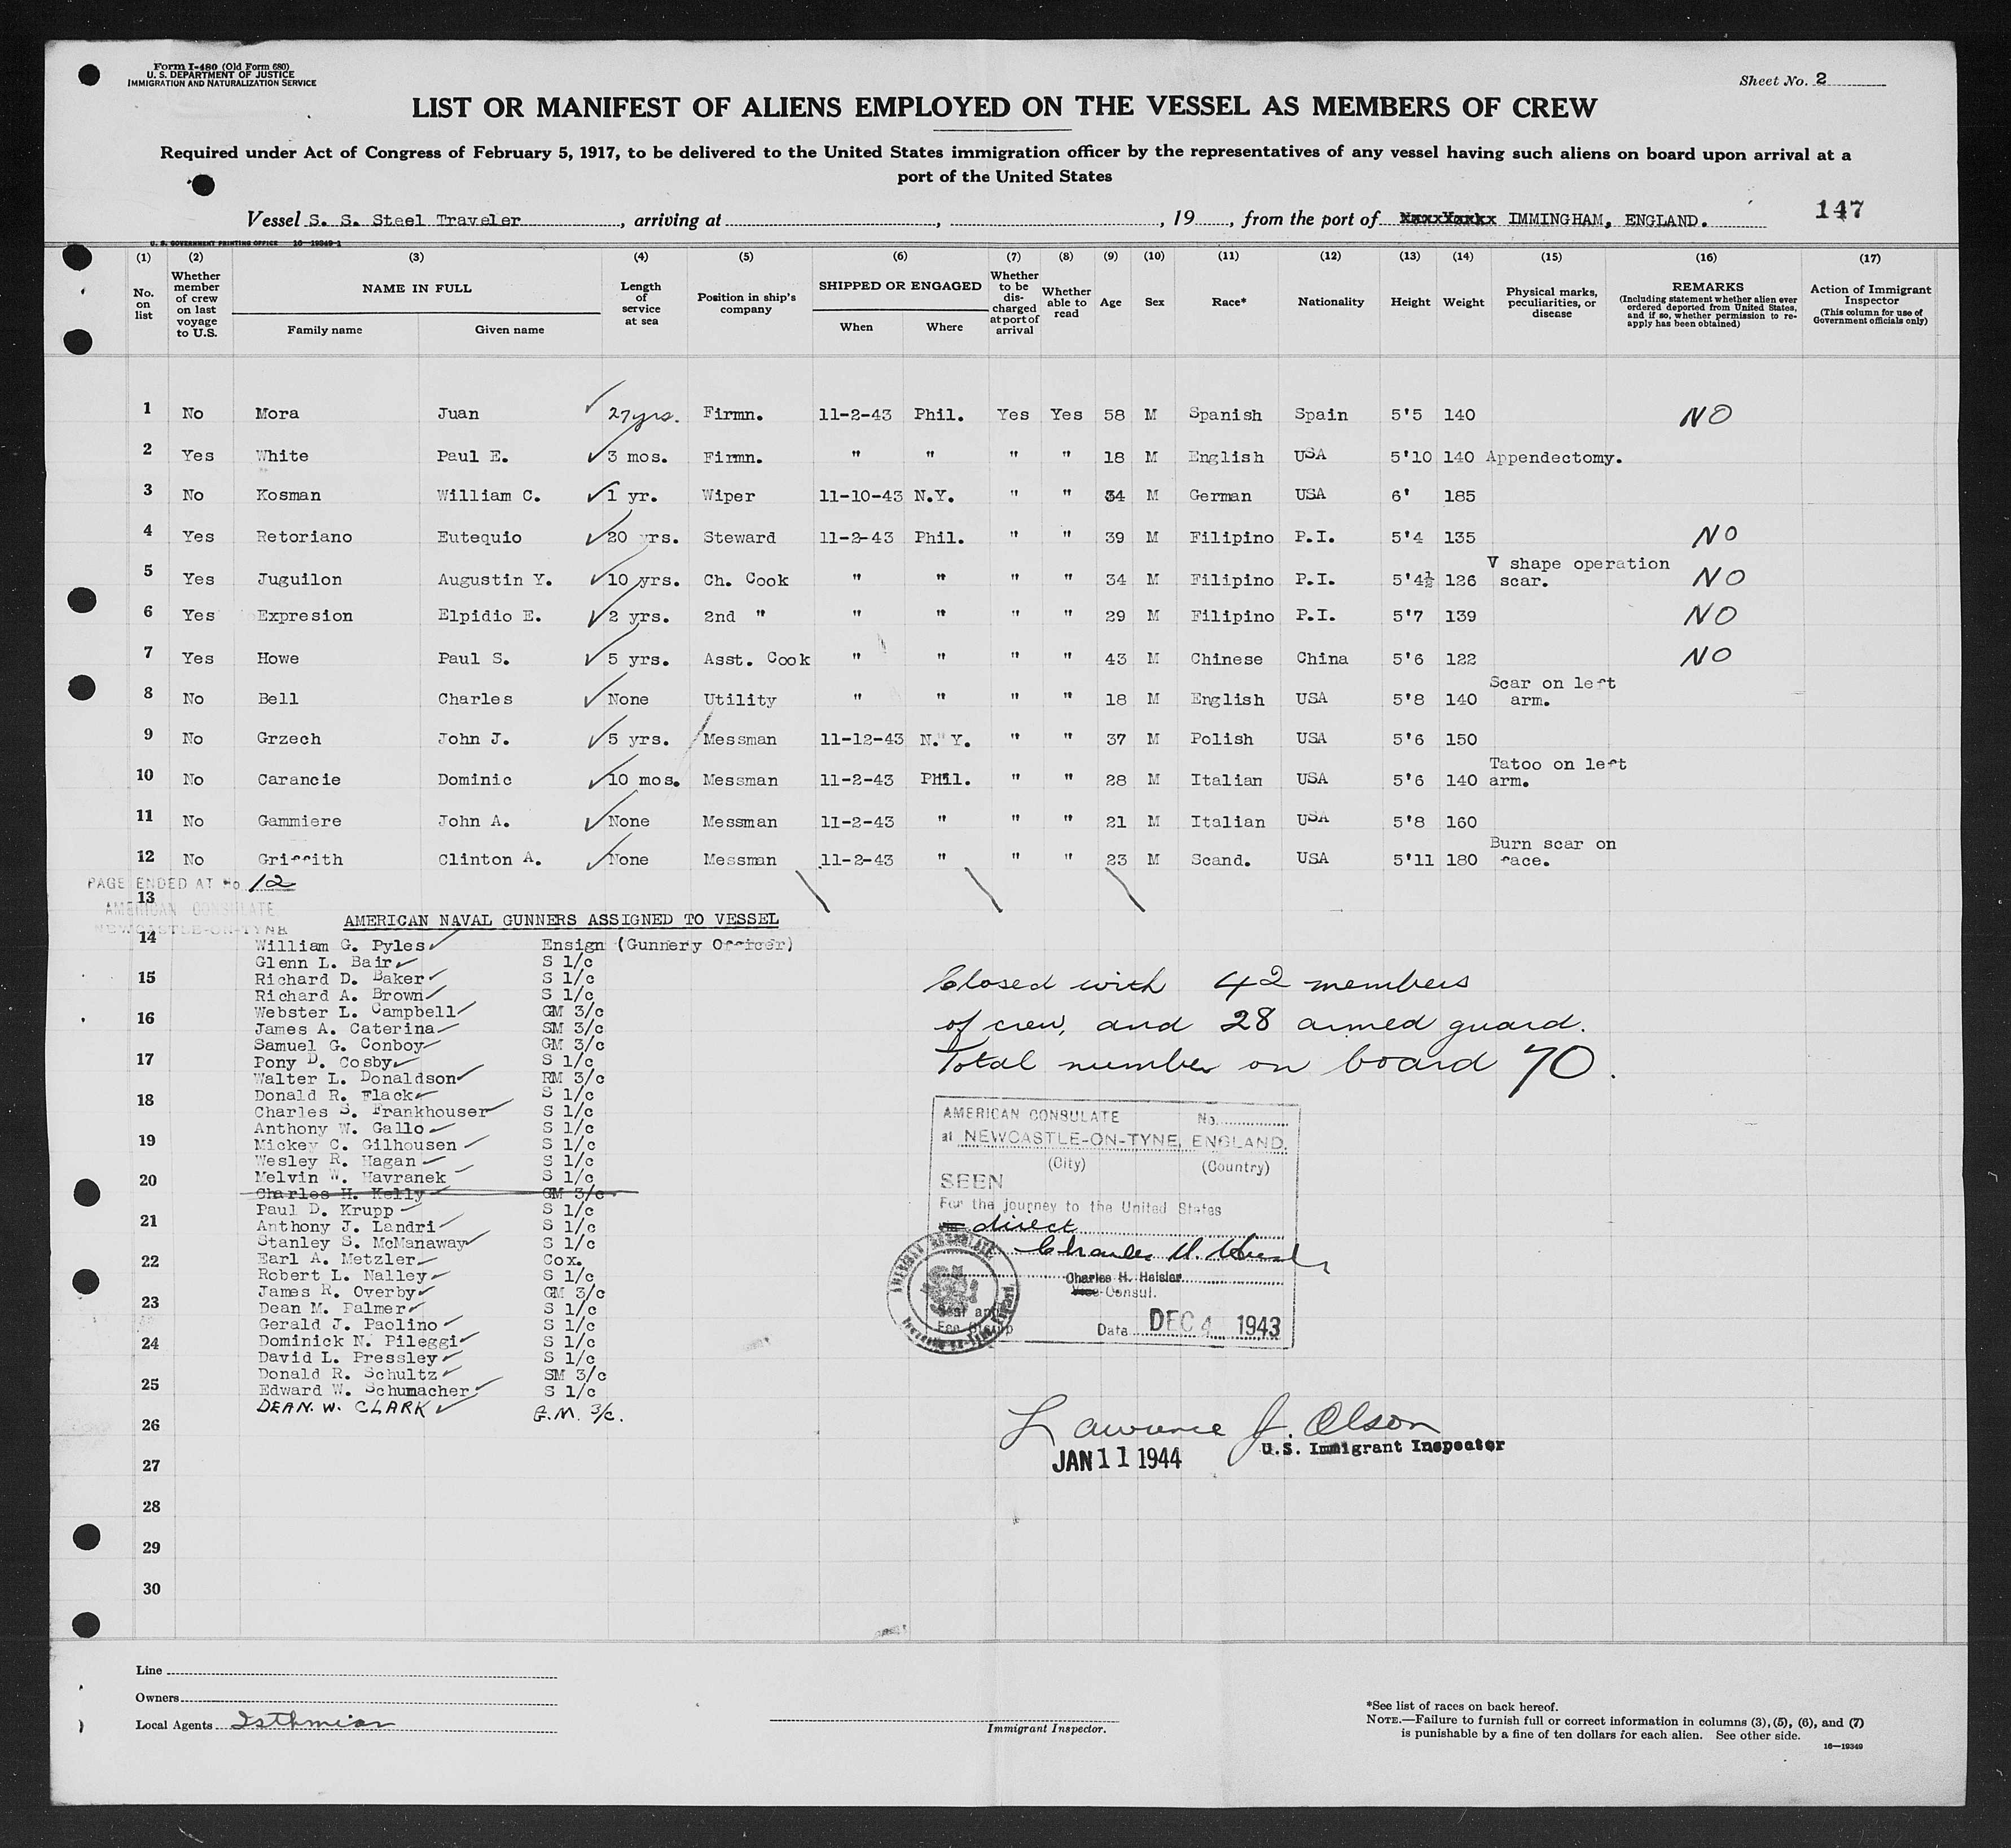 Form I-480 (Old Form 680)
U. S. DEPARTMENT OF JUSTICE
IMMIGRATION AND NATURALIZATION SERVICE
Sheet No. 2
LIST OR MANIFEST OF ALIENS EMPLOYED ON THE VESSEL AS MEMBERS OF CREW
Required under Act of Congress of February 5, 1917, to be delivered to the United States immigration officer by the representatives of any vessel having such aliens on board upon arrival at a
port of the United States
Vessel S. S. Steel Traveler, arriving at , , 19 , from the port of IMMINGHAM, ENGLAND. 147
U. S. GOVERNMENT PRINTING OFFICE 16-19349-1
(1) (2) (3) (4) (5) (6) (7) (8) (9) (10) (11) (12) (13) (14) (15) (16) (17)
No. on list
Whether member of crew on last voyage to U.S.
NAME IN FULL
Family name Given name
Length of service at sea
Position in ship's company
SHIPPED OR ENGAGED
When Where
Whether to be discharged at port of arrival
Whether able to read
Age Sex Race* Nationality Height Weight
Physical marks, peculiarities, or disease
REMARKS
(Including statement whether alien ever ordered deported from United States, and if so, whether permission to re-apply has been obtained)
Action of Immigrant Inspector
(This column for use of Government officials only)
1 No Mora Juan 27 yrs. Firmn. 11-2-43 Phil. Yes Yes 58 M Spanish Spain 5'5 140 NO
2 Yes White Paul E. 3 mos. Firmn. " " " " 18 M English USA 5'10 140 Appendectomy.
3 No Kosman William C. 1 yr. Wiper 11-10-43 N.Y. " " 34 M German USA 6' 185
4 Yes Retoriano Eutequio 20 yrs. Steward 11-2-43 Phil. " " 39 M Filipino P.I. 5'4 135 NO
5 Yes Juguilon Augustin Y. 10 yrs. Ch. Cook " " " " 34 M Filipino P.I. 5'4½ 126 V shape operation scar. NO
6 Yes Expresion Elpidio E. 2 yrs. 2nd " " " " " 29 M Filipino P.I. 5'7 139 NO
7 Yes Howe Paul S. 5 yrs. Asst. Cook " " " " 43 M Chinese China 5'6 122 NO
8 No Bell Charles None Utility " " " " 18 M English USA 5'8 140 Scar on left arm.
9 No Grzech John J. 5 yrs. Messman 11-12-43 N. Y. " " 37 M Polish USA 5'6 150
10 No Carancie Dominic 10 mos. Messman 11-2-43 Phil. " " 28 M Italian USA 5'6 140 Tatoo on left arm.
11 No Gammiere John A. None Messman 11-2-43 " " " 21 M Italian USA 5'8 160
12 No Griffith Clinton A. None Messman 11-2-43 " " " 23 M Scand. USA 5'11 180 Burn scar on face.
PAGE ENDED AT No. 12
AMERICAN CONSULATE
NEWCASTLE-ON-TYNE
13
14
15
16
17
18
19
20
21
22
23
24
25
26
27
28
29
30
AMERICAN NAVAL GUNNERS ASSIGNED TO VESSEL
William G. Pyles Ensign (Gunnery Officer)
Glenn L. Bair S 1/c
Richard D. Baker S 1/c
Richard A. Brown S 1/c
Webster L. Campbell GM 3/c
James A. Caterina SM 3/c
Samuel G. Conboy GM 3/c
Pony D. Cosby S 1/c
Walter L. Donaldson RM 3/c
Donald R. Flack S 1/c
Charles S. Frankhouser S 1/c
Anthony W. Gallo S 1/c
Mickey C. Gilhousen S 1/c
Wesley R. Hagan S 1/c
Melvin W. Havranek S 1/c
Charles H. Kelly GM 3/c
Paul D. Krupp S 1/c
Anthony J. Landri S 1/c
Stanley S. McManaway S 1/c
Earl A. Metzler Cox.
Robert L. Nalley S 1/c
James R. Overby GM 3/c
Dean M. Palmer S 1/c
Gerald J. Paolino S 1/c
Dominick N. Pileggi S 1/c
David L. Pressley S 1/c
Donald R. Schultz SM 3/c
Edward W. Schumacher S 1/c
DEAN. W. CLARK G.M. 3/c.
Closed with 42 members
of crew, and 28 armed guard.
Total number on board 70.
AMERICAN CONSULATE No.
at NEWCASTLE-ON-TYNE, ENGLAND.
(City) (Country)
SEEN
For the journey to the United States
direct
Charles H. Heisler
Vice Consul.
Seal and
Fee Stamp
Date DEC 4 1943
Lawrence J. Olson
U.S. Immigrant Inspector
JAN 11 1944
Line
Owners
Local Agents Isthmian
Immigrant Inspector.
*See list of races on back hereof.
NOTE.—Failure to furnish full or correct information in columns (3), (5), (6), and (7)
is punishable by a fine of ten dollars for each alien. See other side.
16—19349